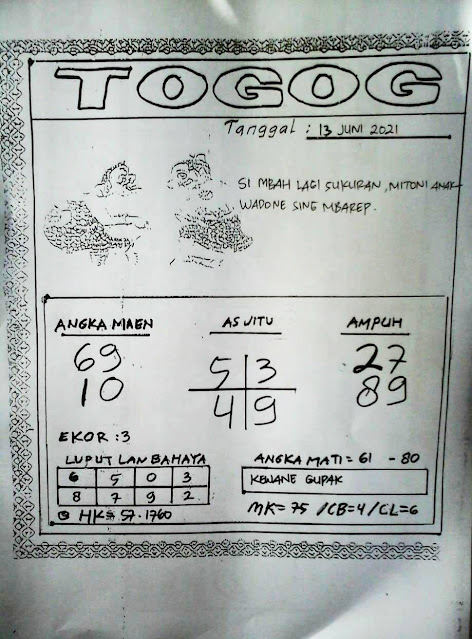 TOGOG
Tanggal : 13 JUNI 2021
SI MBAH LAGI SUKURAN, MITONI ANAK
WADONE SING MBAREP.
ANGKA MAEN
69
10
AS JITU
5 3
4 9
AMPUH
27
89
EKOR : 3
LUPUT LAN BAHAYA
6 5 0 3
8 7 9 2
HK = 57.1760
ANGKA MATI = 61 - 80
KEWANE GUPAK
MK= 75 /CB=4/CL=6